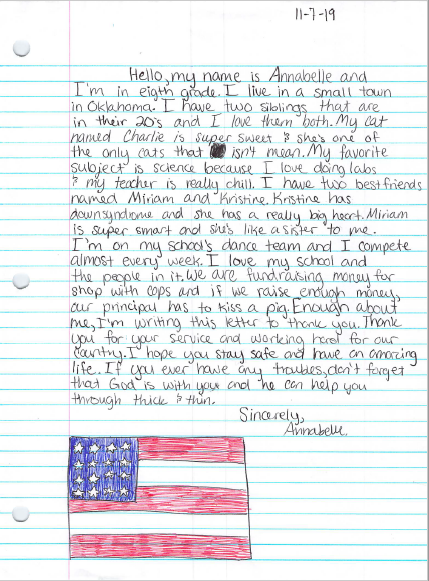 11-7-19
Hello, my name is Annabelle and
I'm in eigth grade. I live in a small town
in Oklahoma. I have two siblings that are
in their 20's and I love them both. My cat
named Charlie is super sweet & she's one of
the only cats that isn't mean. My favorite
subject is science because I love doing labs
& my teacher is really chill. I have two best friends
named Miriam and Kristine. Kristine has
downsyndrome and she has a really big heart. Miriam
is super smart and she's like a sister to me.
I'm on my school's dance team and I compete
almost every week. I love my school and
the people in it. We are fundraising money for
shop with cops and if we raise enough money,
our principal has to kiss a pig. Enough about
me, I'm writing this letter to thank you. Thank
you for your service and working hard for our
country. I hope you stay safe and have an amazing
life. If you ever have any troubles, don't forget
that God is with you and he can help you
through thick & thin.
Sincerely,
Annabelle.